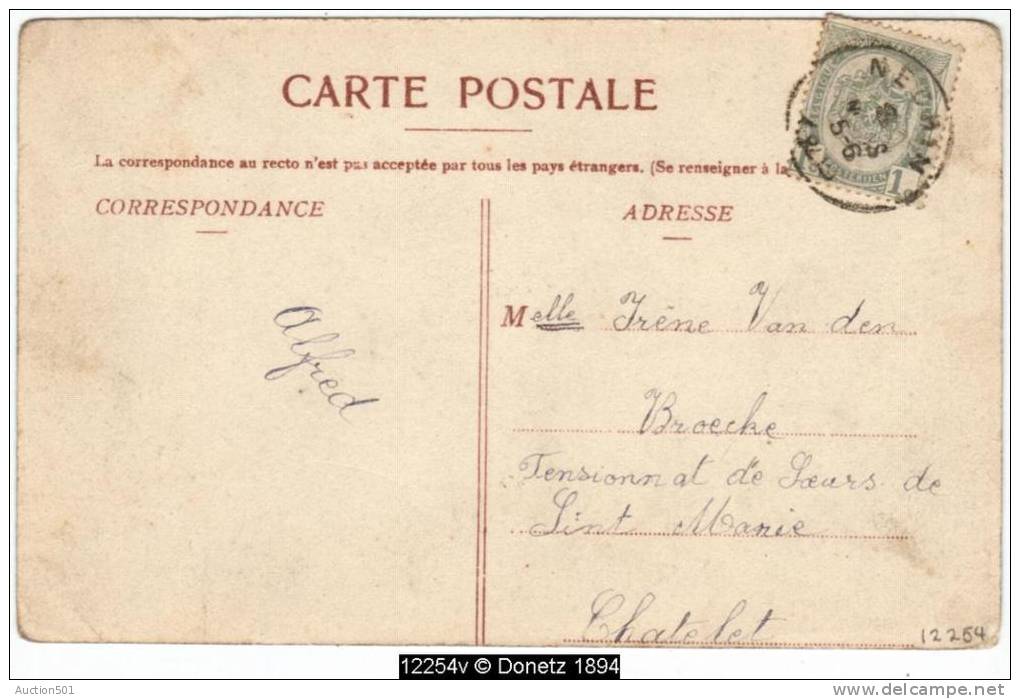 CARTE POSTALE
La correspondance au recto n'est pas acceptée par tous les pays étrangers. (Se renseigner à la
CORRESPONDANCE
ADRESSE
NECHIN
1
Alfred
Melle Irène Van den
Broecke
Pensionnat de Sœurs de
Sint Marie
Chatelet
12254
12254v © Donetz 1894
Auction501
delcampe.net